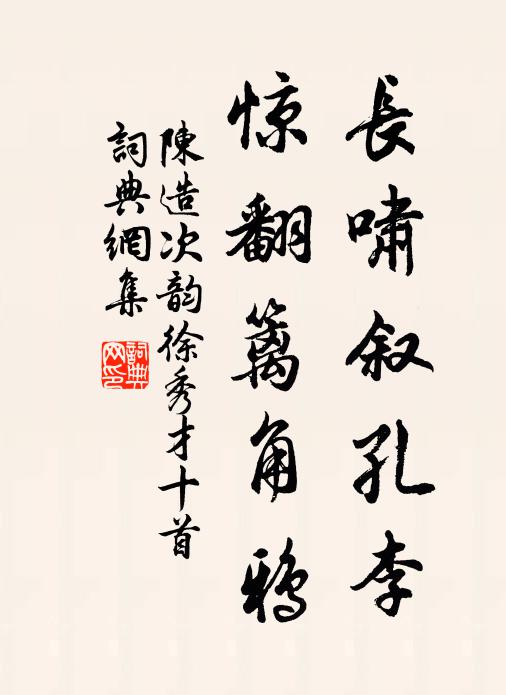 長啸叙孔李
惊翻篱角鸦
陳造次韵徐秀才十首
詞典網集
詞典網印